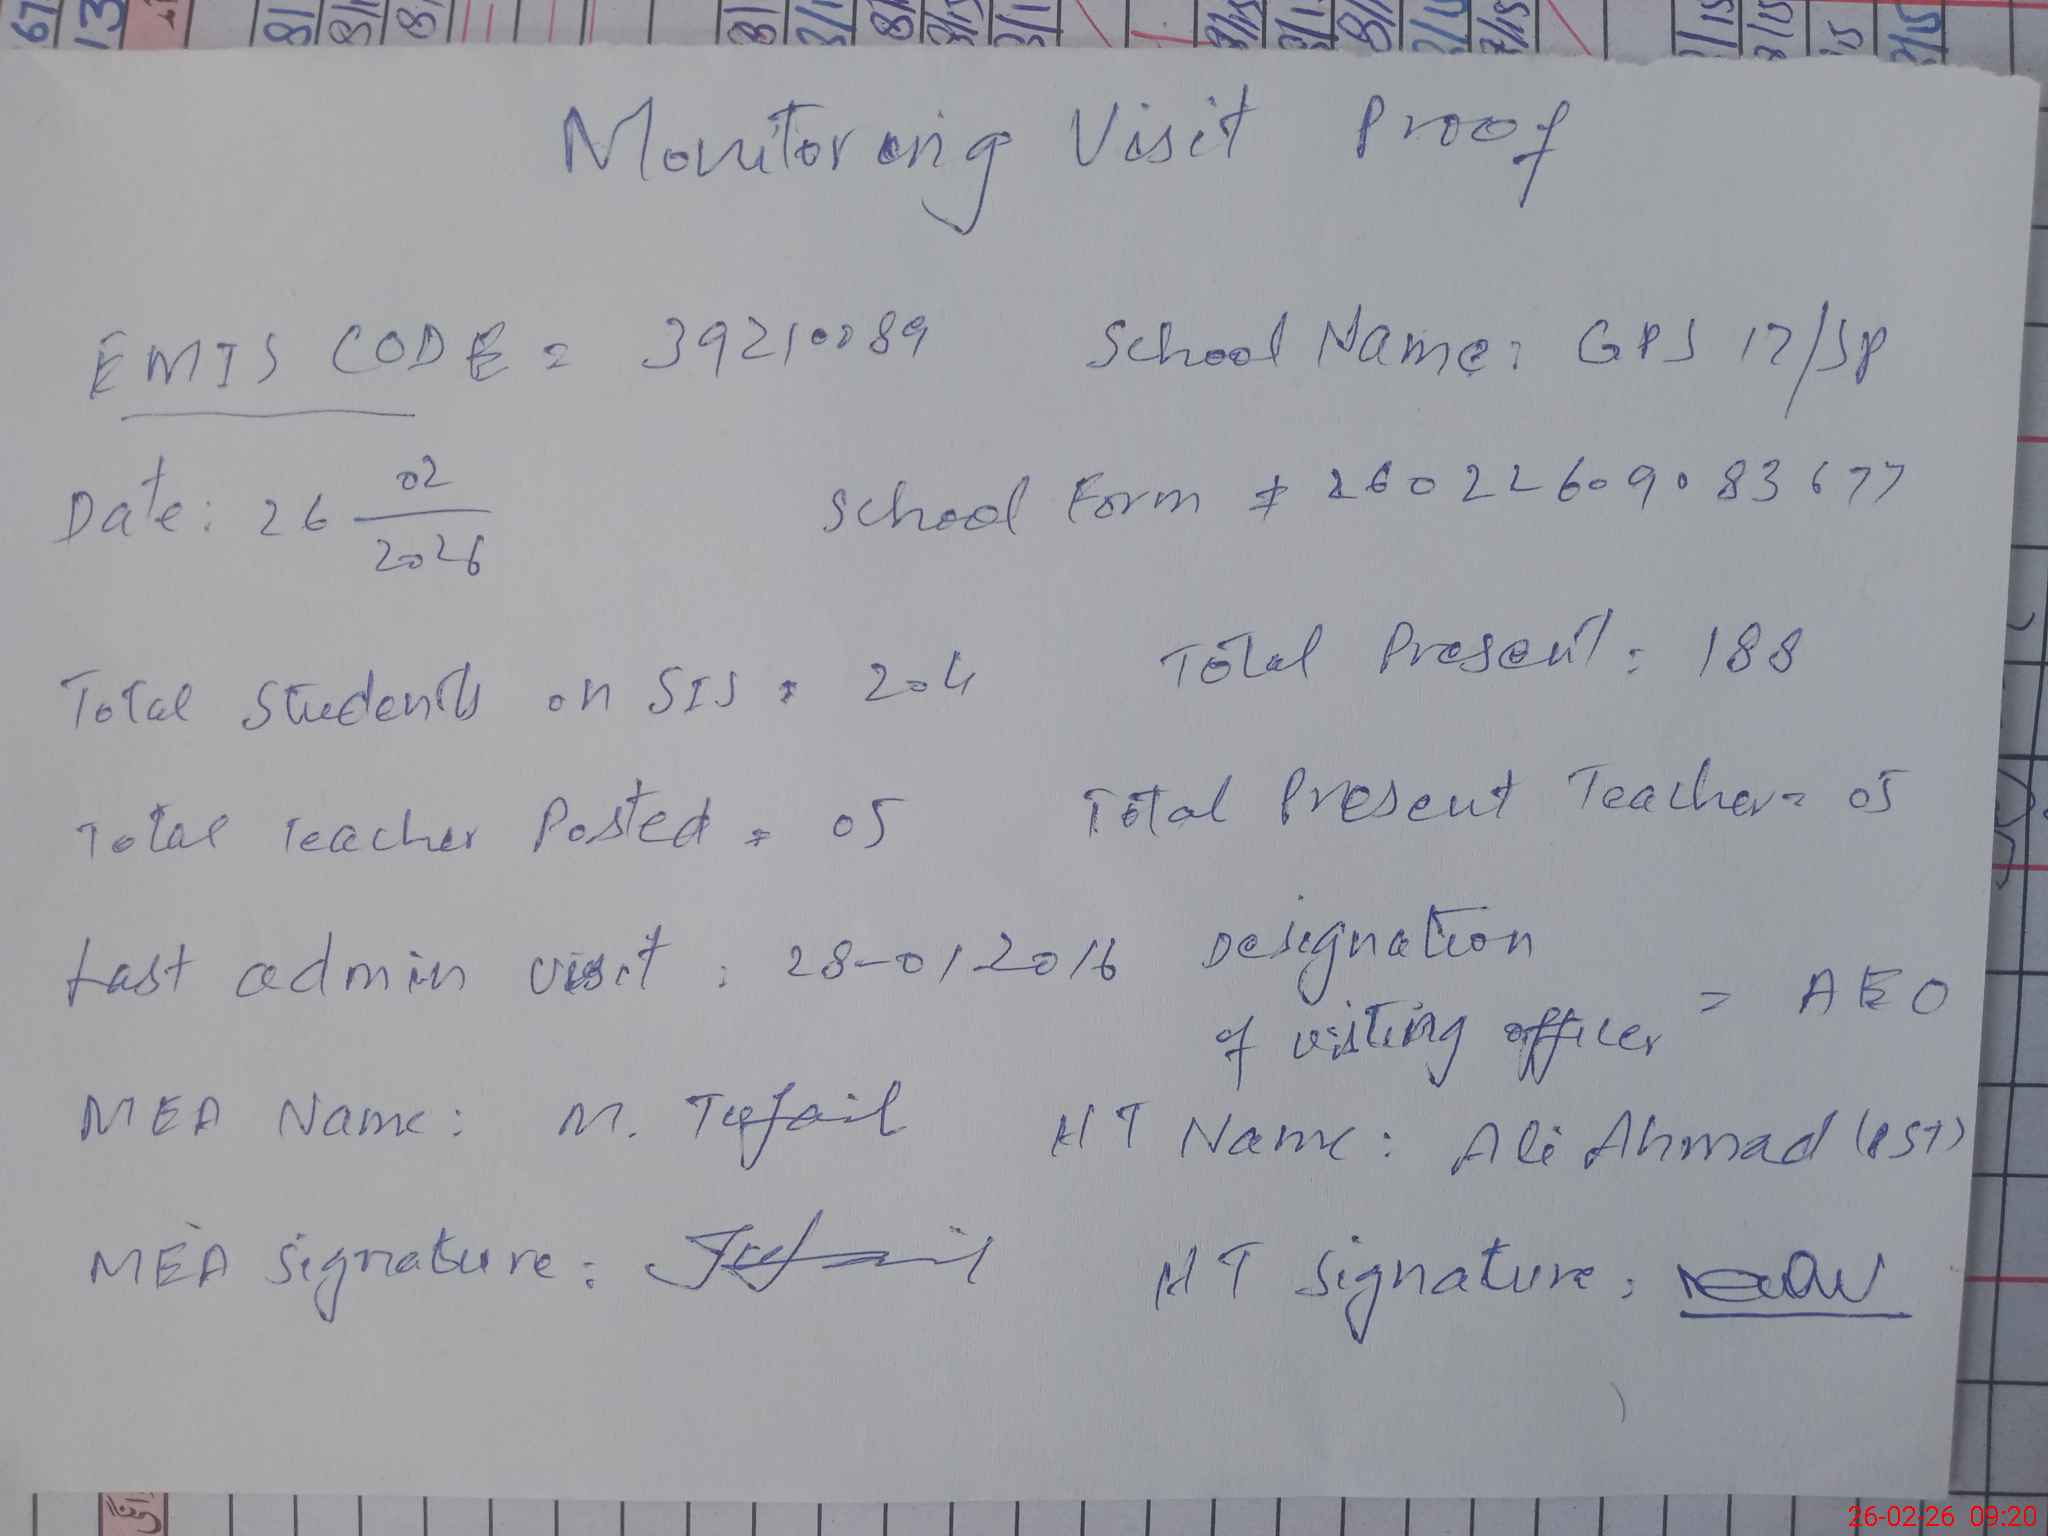 Monitoring Visit Proof
EMIS CODE = 39210089 School Name: GPS 17/SP
Date: 26 02/2026 School Form # 26022609083677
Total Students on SIS = 204 Total Present: 188
Total Teacher Posted = 05 Total Present Teacher = 05
Last admin visit: 28-01-2016 Designation of visiting officer = AEO
MEA Name: M. Tufail HT Name: Ali Ahmad (PST)
MEA Signature: Tufail HT Signature:
26-02-26 09:20